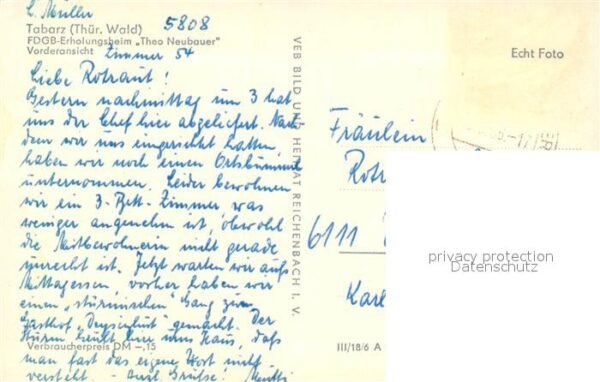 L. Müller
5808
Tabarz (Thür. Wald)
FDGB-Erholungsheim „Theo Neubauer"
Vorderansicht
Zimmer 54
Liebe Rotraut!
Gestern nachmittag um 3 hat
uns der Chef hier abgeliefert. Nach
dem wir uns eingerichtet hatten,
haben wir noch einen Ortsbummel
unternommen. Leider bewohnen
wir ein 3-Bett-Zimmer, was
weniger angenehm ist, obwohl
die Mitbewohnerin nicht gerade
ist. Jetzt warten wir aufs
Mittagessen, vorher haben wir
einen „stürmischen" Gang zum
Gasthof gemacht. Der
Sturm heult hier ums Haus, daß
man fast das eigene Wort nicht
versteht. - Grüße! Mutti
Verbraucherpreis DM -,15
VEB BILD UND HEIMAT REICHENBACH I. V.
Echt Foto
Fräulein
Rotr
6111
Karl
III/18/6 A
privacy protection
Datenschutz